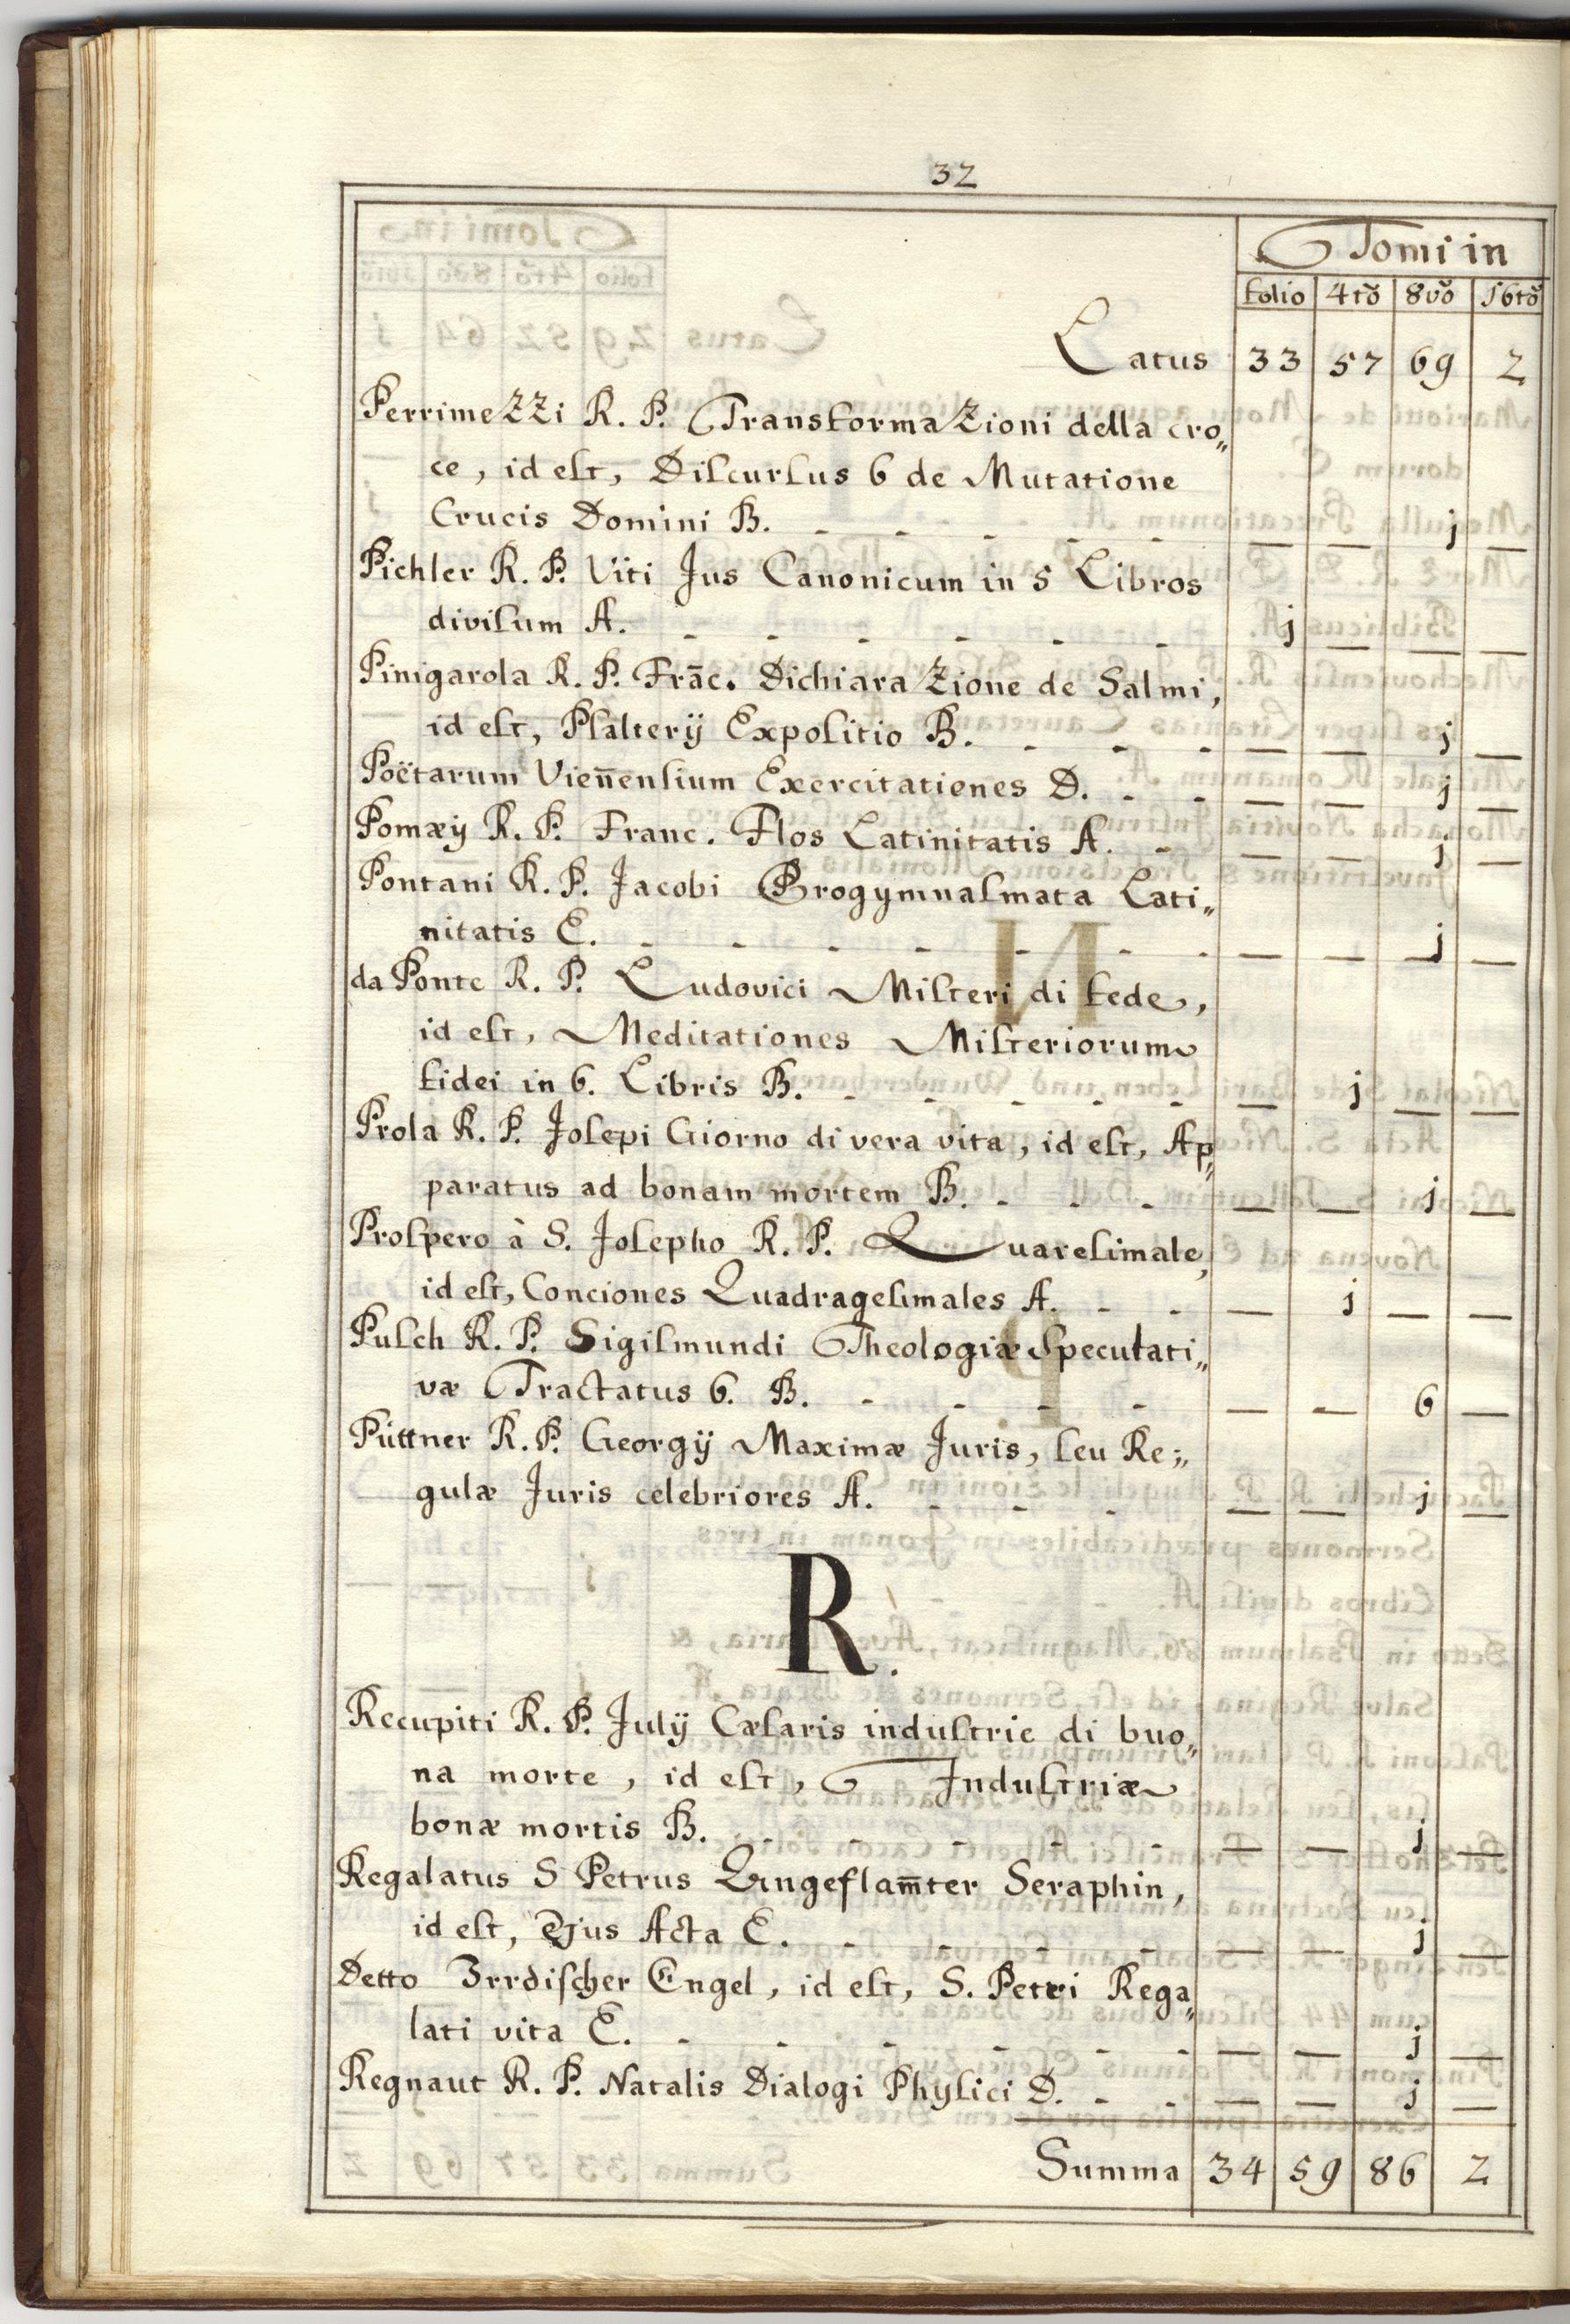 32
Tomi in
folio 4tô 8vô 16tô
Latus 33 57 69 2
Perrimezzi R. P. Transformazioni della cro„
ce, id eſt, Diſcurſus 6 de Mutatione
Crucis Domini B. - - - - - — — j —
Pichler R. P. Viti Jus Canonicum in 5 Libros
diviſum A. - - - - - - - j — — —
Pinigarola R. P. Frāc. Dichiarazione de Salmi,
id eſt, Pſalterij Expoſitio B. - - - — — j —
Poëtarum Vien̄enſium Exercitationes D. - - — — j —
Pomæÿ R. P. Franc. Flos Latinitatis A. - — — j —
Pontani R. P. Jacobi Progymnaſmata Lati„
nitatis E. - - - - - - - - — — j —
da Ponte R. P. Ludovici Miſteri di fede,
id eſt, Meditationes Miſteriorum
fidei in 6. Libris B. - - - - - — j — —
Prola R. P. Joſepi Giorno di vera vita, id eſt, Ap„
paratus ad bonam mortem B. - - - — — j —
Proſpero à S. Joſepho R. P. Quareſimale,
id eſt, Conciones Quadrageſimales A. - - — j — —
Pulch R. P. Sigiſmundi Theologiæ Speculati„
væ Tractatus 6. B. - - - - — — 6 —
Püttner R. P. Georgij Maximæ Juris, ſeu Re„
gulæ Juris celebriores A. - - - — — j —
R.
Recupiti R. P. Julij Cæſaris induſtrie di buo„
na morte, id eſt, Induſtriæ
bonæ mortis B. - - - - - - — — j —
Regalatus S Petrus Eingeflam̄ter Seraphin,
id eſt, Ejus Acta E. - - - - - — — j —
Detto Irrdiſcher Engel, id eſt, S. Petri Rega„
lati vita E. - - - - - - — — j —
Regnaut R. P. Natalis Dialogi Phyſici D. - - — — j —
Summa 34 59 86 2